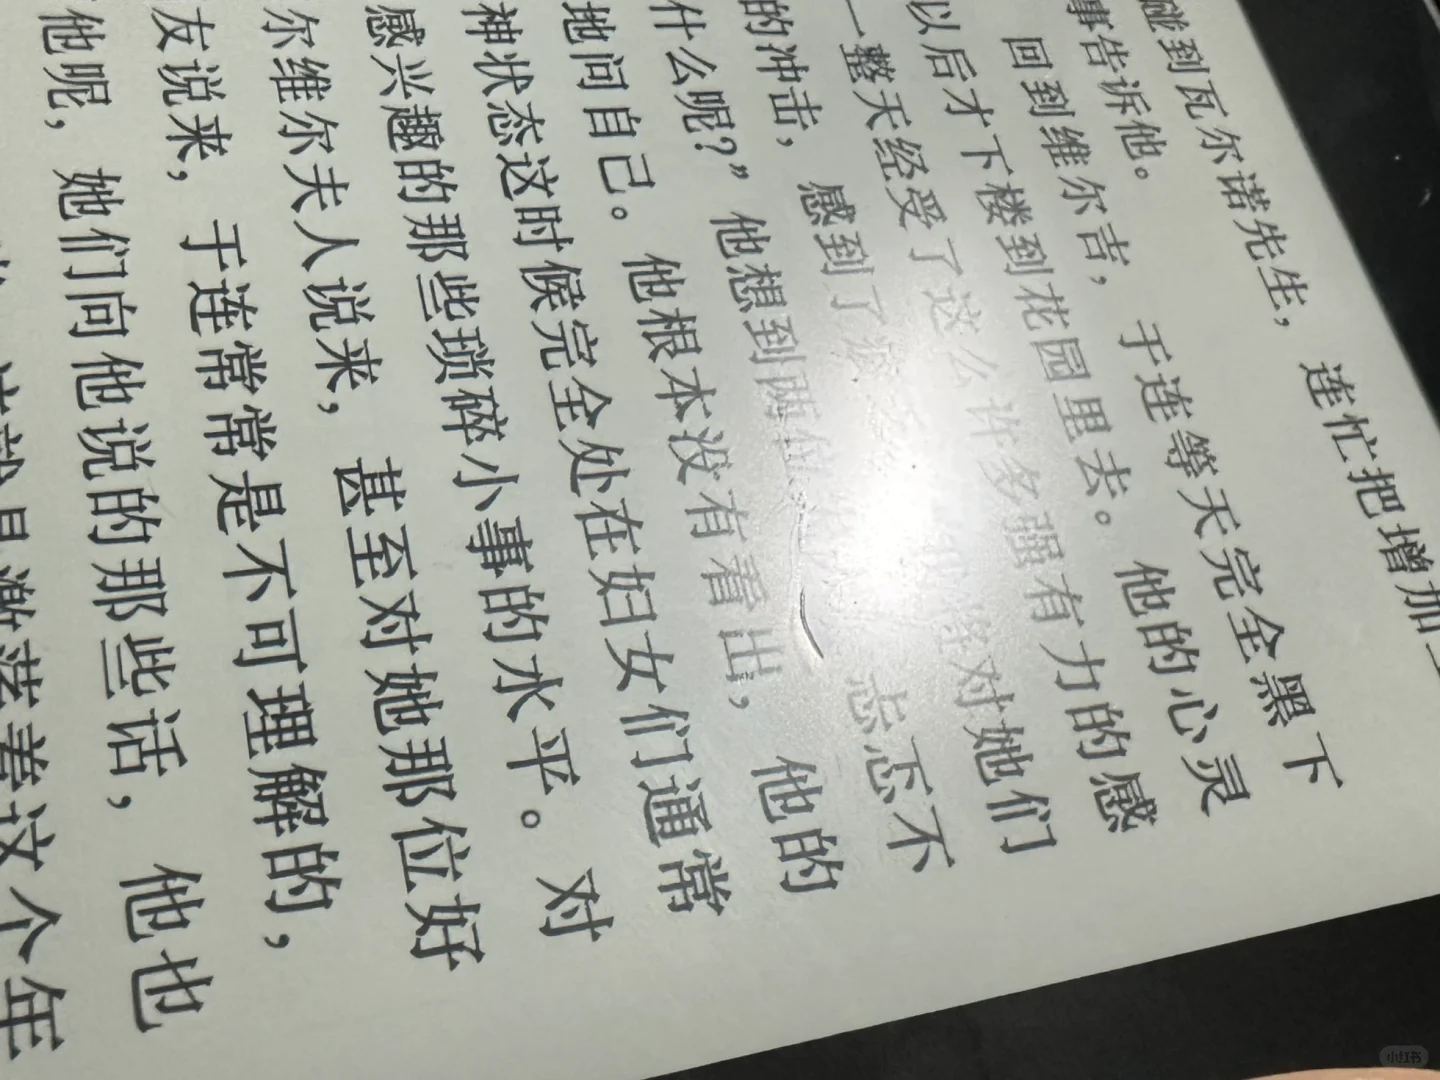 连忙把增加
碰到瓦尔诺先生，
事告诉他。
回到维尔吉，于连等天完全黑下
以后才下楼到花园里去。他的心灵
一整天经受了这么许多强有力的感
的冲击，感到了 对她们
什么呢？”他想到两位 忐忑不
地问自己。他根本没有看出，他的
神状态这时候完全处在妇女们通常
感兴趣的那些琐碎小事的水平。对
尔维尔夫人说来，甚至对她那位好
友说来，于连常常是不可理解的，
他呢，她们向他说的那些话，他也
这个年
小红书